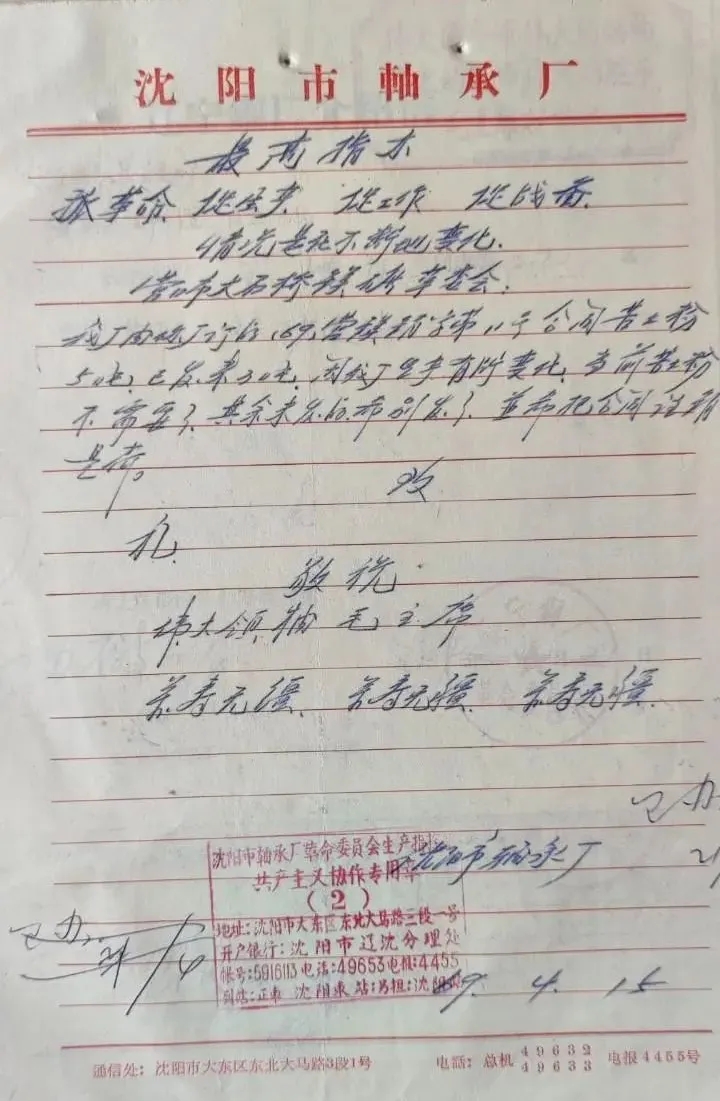 沈阳市軸承厂
最高指示
抓革命 促生产 促工作 促战备.
情况是在不断地变化.
营口市大石桥镁矿革委会:
我厂向你厂订的 69 营镁硝字第 11号合同苦土粉
50吨, 已发来30吨, 因我厂生产有所变化, 当前苦土粉
不需要了. 其余未发的希别发了. 并希把合同注销
是荷。
致
礼
敬祝
伟大领袖毛主席
万寿无疆. 万寿无疆. 万寿无疆.
已办
沈阳市轴承厂
沈阳市軸承厂革命委员会生产指
共产主义协作专用章
(2)
地址:沈阳市大东区东北大马路三段一号
开户银行:沈阳市辽沈分理处
帐号:5916113电话:49653电报:4455
到站:正车 沈阳东站:另担:沈阳
已办
69. 4. 15
通信处: 沈阳市大东区东北大马路3段1号
电话: 总机 49632 49633 电报4455号